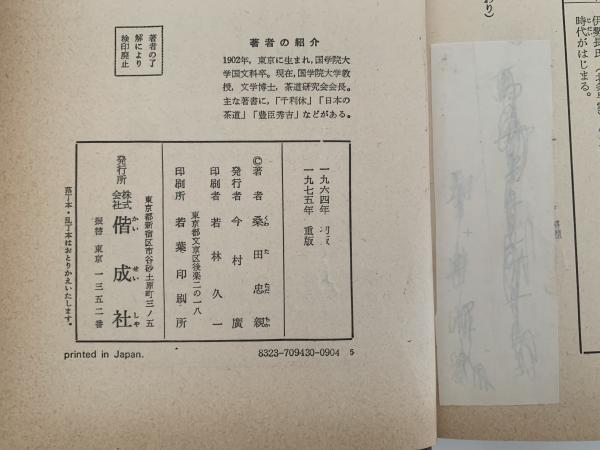 わり）
時代がはじまる。
著者の了
解により
検印廃止
著者の紹介
1902年，東京に生まれ，国学院大
学国文科卒。現在，国学院大学教
授，文学博士，茶道研究会会長。
主な著書に，「千利休」「日本の
茶道」「豊臣秀吉」などがある。
一九六四年 初版
一九七五年 重版
©著者 桑田忠親
くわ た ただ ちか
発行者 今村廣
印刷者 若林久一
東京都文京区後楽二の一八
印刷所 若葉印刷所
東京都新宿区市谷砂土原町三ノ五
発行所 株式会社 偕成社
かい せい しゃ
振替 東京 一三五二番
落丁本・乱丁本はおとりかえいたします。
printed in Japan.
8323-709430-0904 5